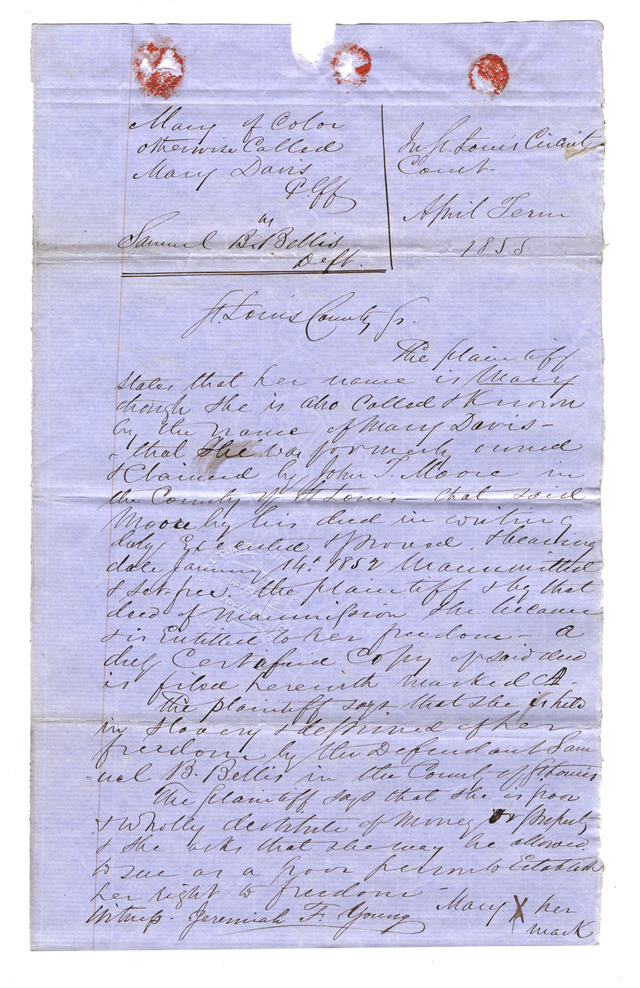 Mary of Color
otherwise Called
Mary Davis
Plff
vs
Samuel B. Bellis
Deft.
In St. Louis Circuit
Court.
April Term
1855
St. Louis County Ss.
The plaintiff
states that her name is Mary
though she is also Called & Known
by the name of Mary Davis -
- that she was formerly owned
& Claimed by John T. Moore in
the County of St Louis - that said
Moore by his deed in writing
duly Executed & proved, & bearing
date January 14th 1852 Manumitted
& set free. the plaintiff & by that
deed of Manumission she became
& is Entitled to her freedom - a
duly Certified Copy of said deed
is filed herewith marked A -
The plaintiff says that she is held
in slavery & deprived of her
freedom by the Defendant Sam
-uel B. Bellis in the County of St. Louis
The plaintiff says that she is poor
& wholly destitute of Money or Property
& she asks that she may be allowed
to sue as a poor person to Establish
her right to freedom -
Mary X her
mark
Witness - Jeremiah F. Young